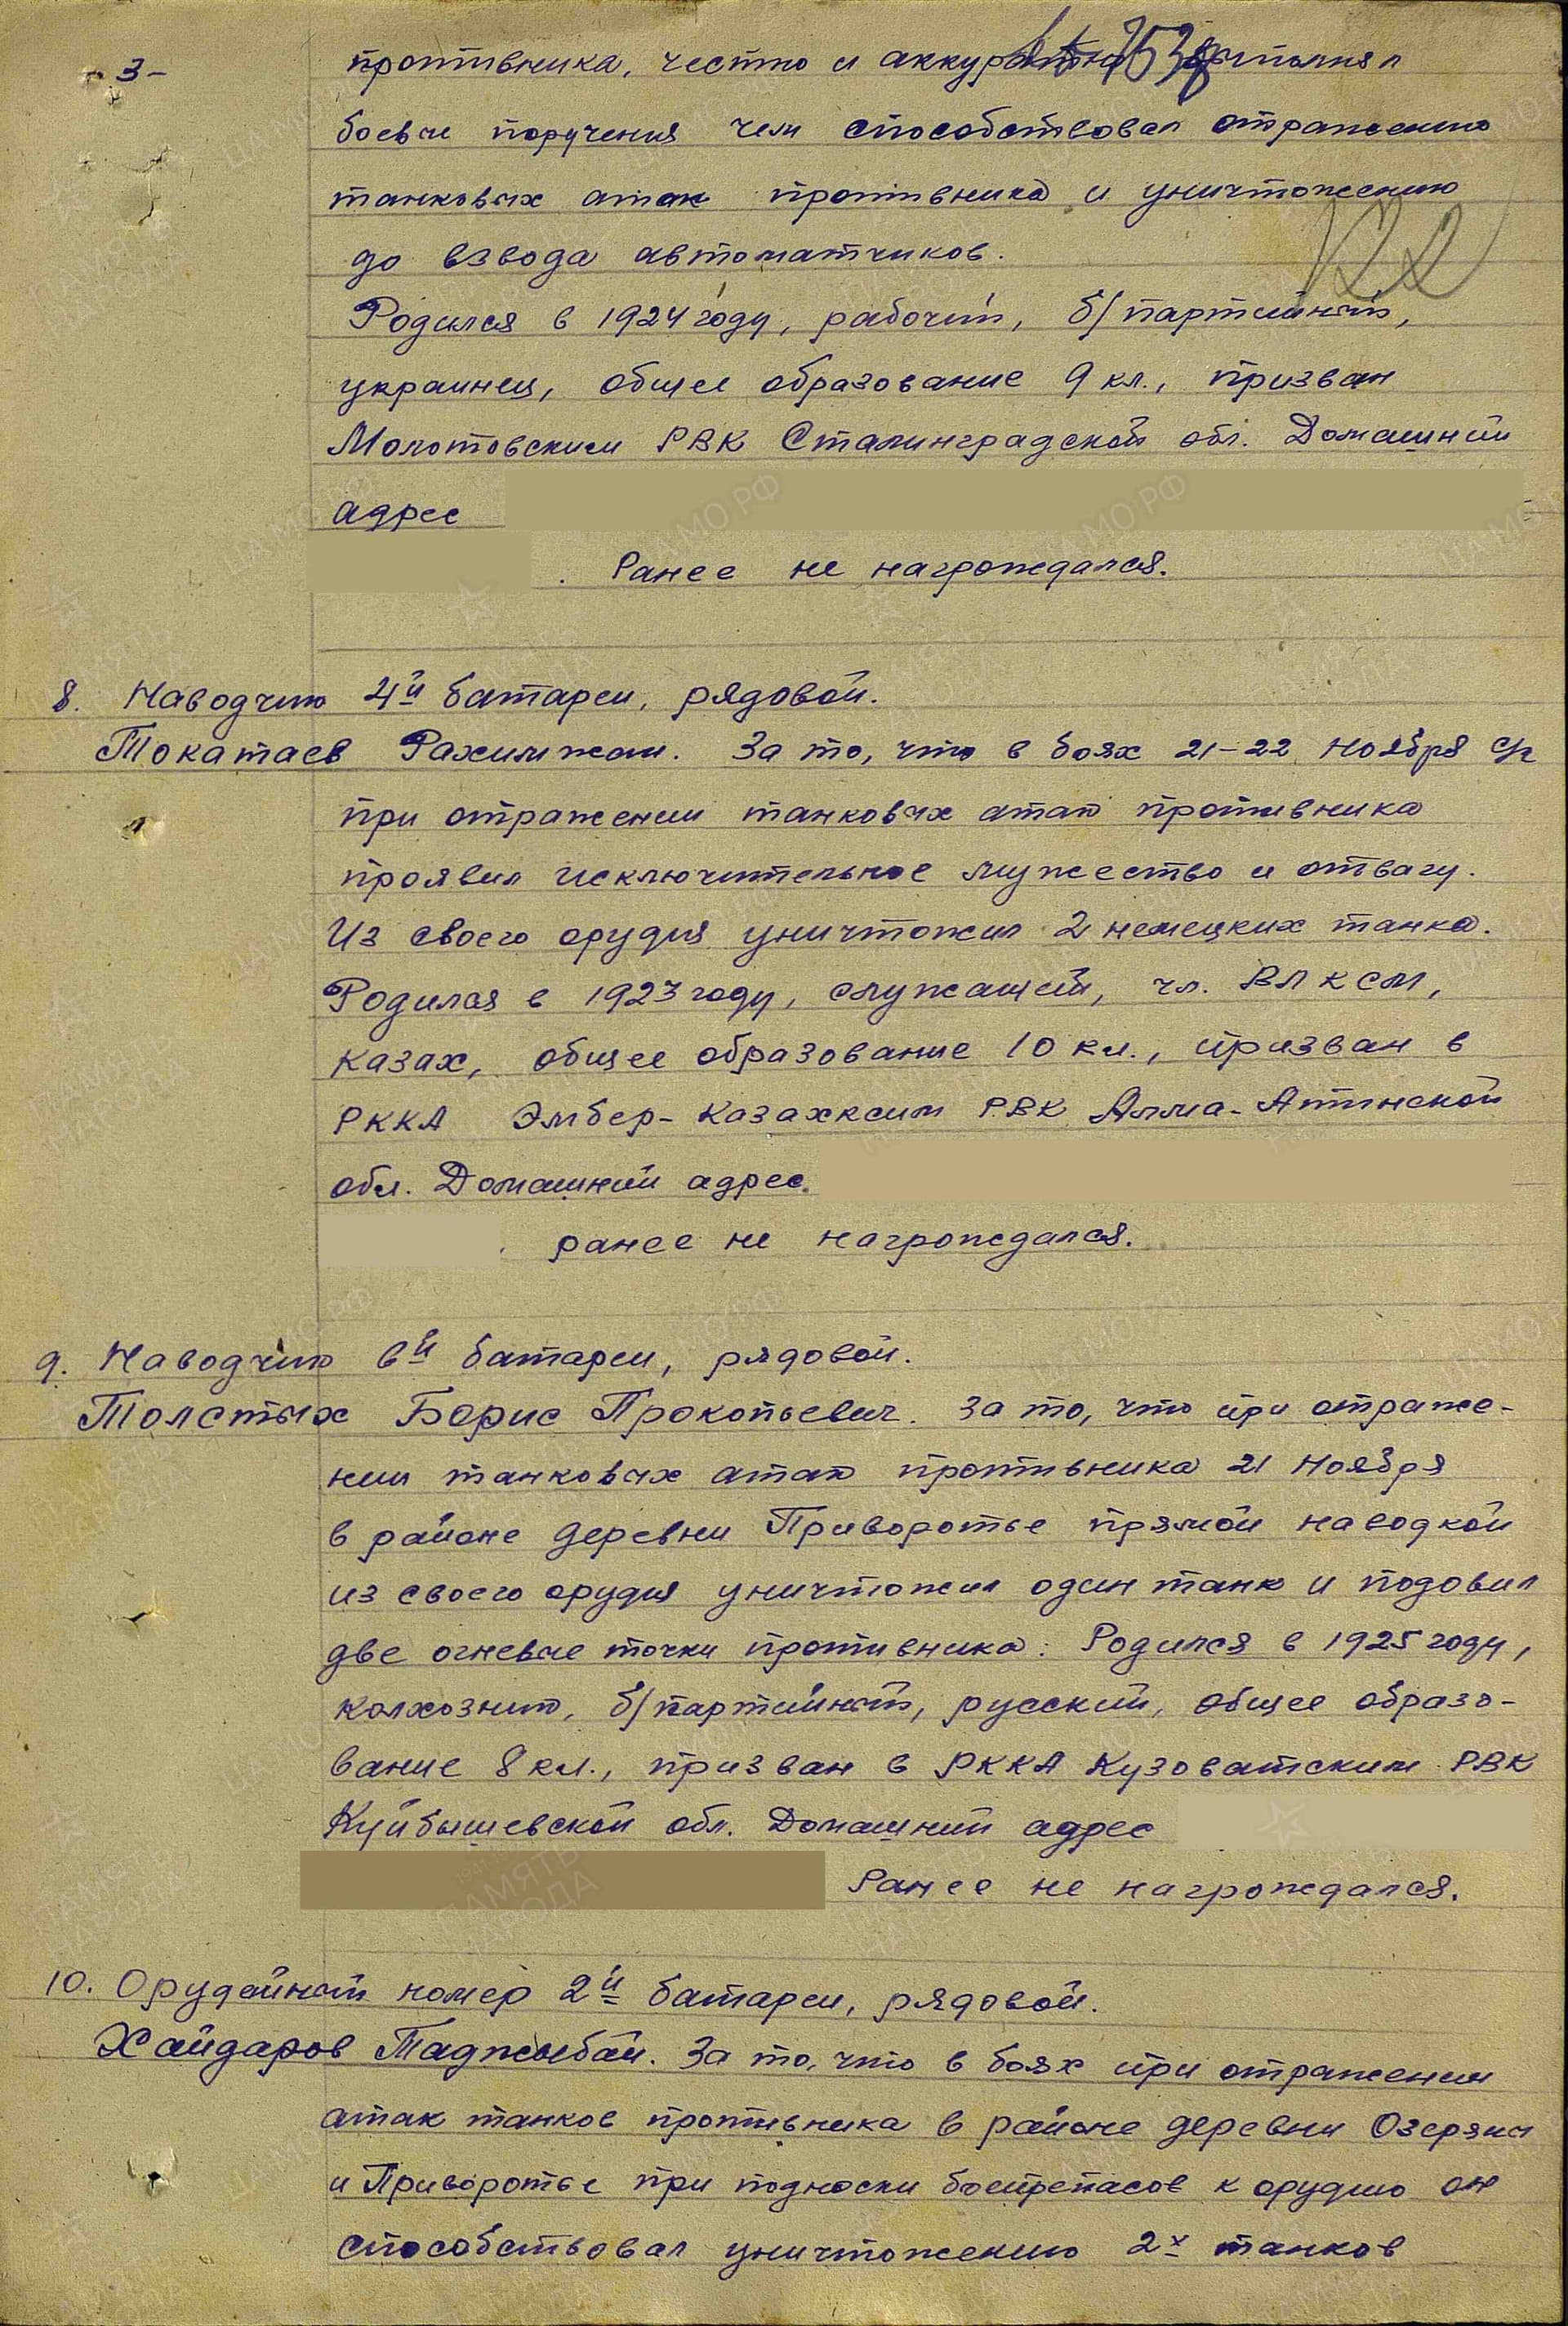 - 3 -
противника, честно и аккуратно выполнял
боевые поручения чем способствовал отражению
танковых атак противника и уничтожению
до взвода автоматчиков.
122
Родился в 1924 году, рабочий, б/партийный,
украинец, общее образование 9 кл., призван
Молотовским РВК Сталинградской обл. Домашний
адрес
. Ранее не награждался.
8. Наводчик 4й батареи, рядовой.
Токатаев Рахимжан. За то, что в боях 21-22 ноября с/г
при отражении танковых атак противника
проявил исключительное мужество и отвагу.
Из своего орудия уничтожил 2 немецких танка.
Родился в 1923 году, служащий, чл. ВЛКСМ,
казах, общее образование 10 кл., призван в
РККА Эмбер-Казахским РВК Алма-Атинской
обл. Домашний адрес.
ранее не награждался.
9. Наводчик 6й батареи, рядовой.
Толстых Борис Прокопьевич. За то, что при отраже-
нии танковых атак противника 21 ноября
в районе деревни Приворотье прямой наводкой
из своего орудия уничтожил один танк и подовил
две огневые точки противника. Родился в 1925 году,
колхозник, б/партийный, русский, общее образо-
вание 8 кл., призван в РККА Кузоватским РВК
Куйбышевской обл. Домашний адрес
Ранее не награждался.
10. Орудейный номер 2й батареи, рядовой.
Хайдаров Таджибай. За то, что в боях при отражении
атак танков противника в районе деревни Озеряны
и Приворотье при подноски боеприпасов к орудию он
способствовал уничтожению 2х танков